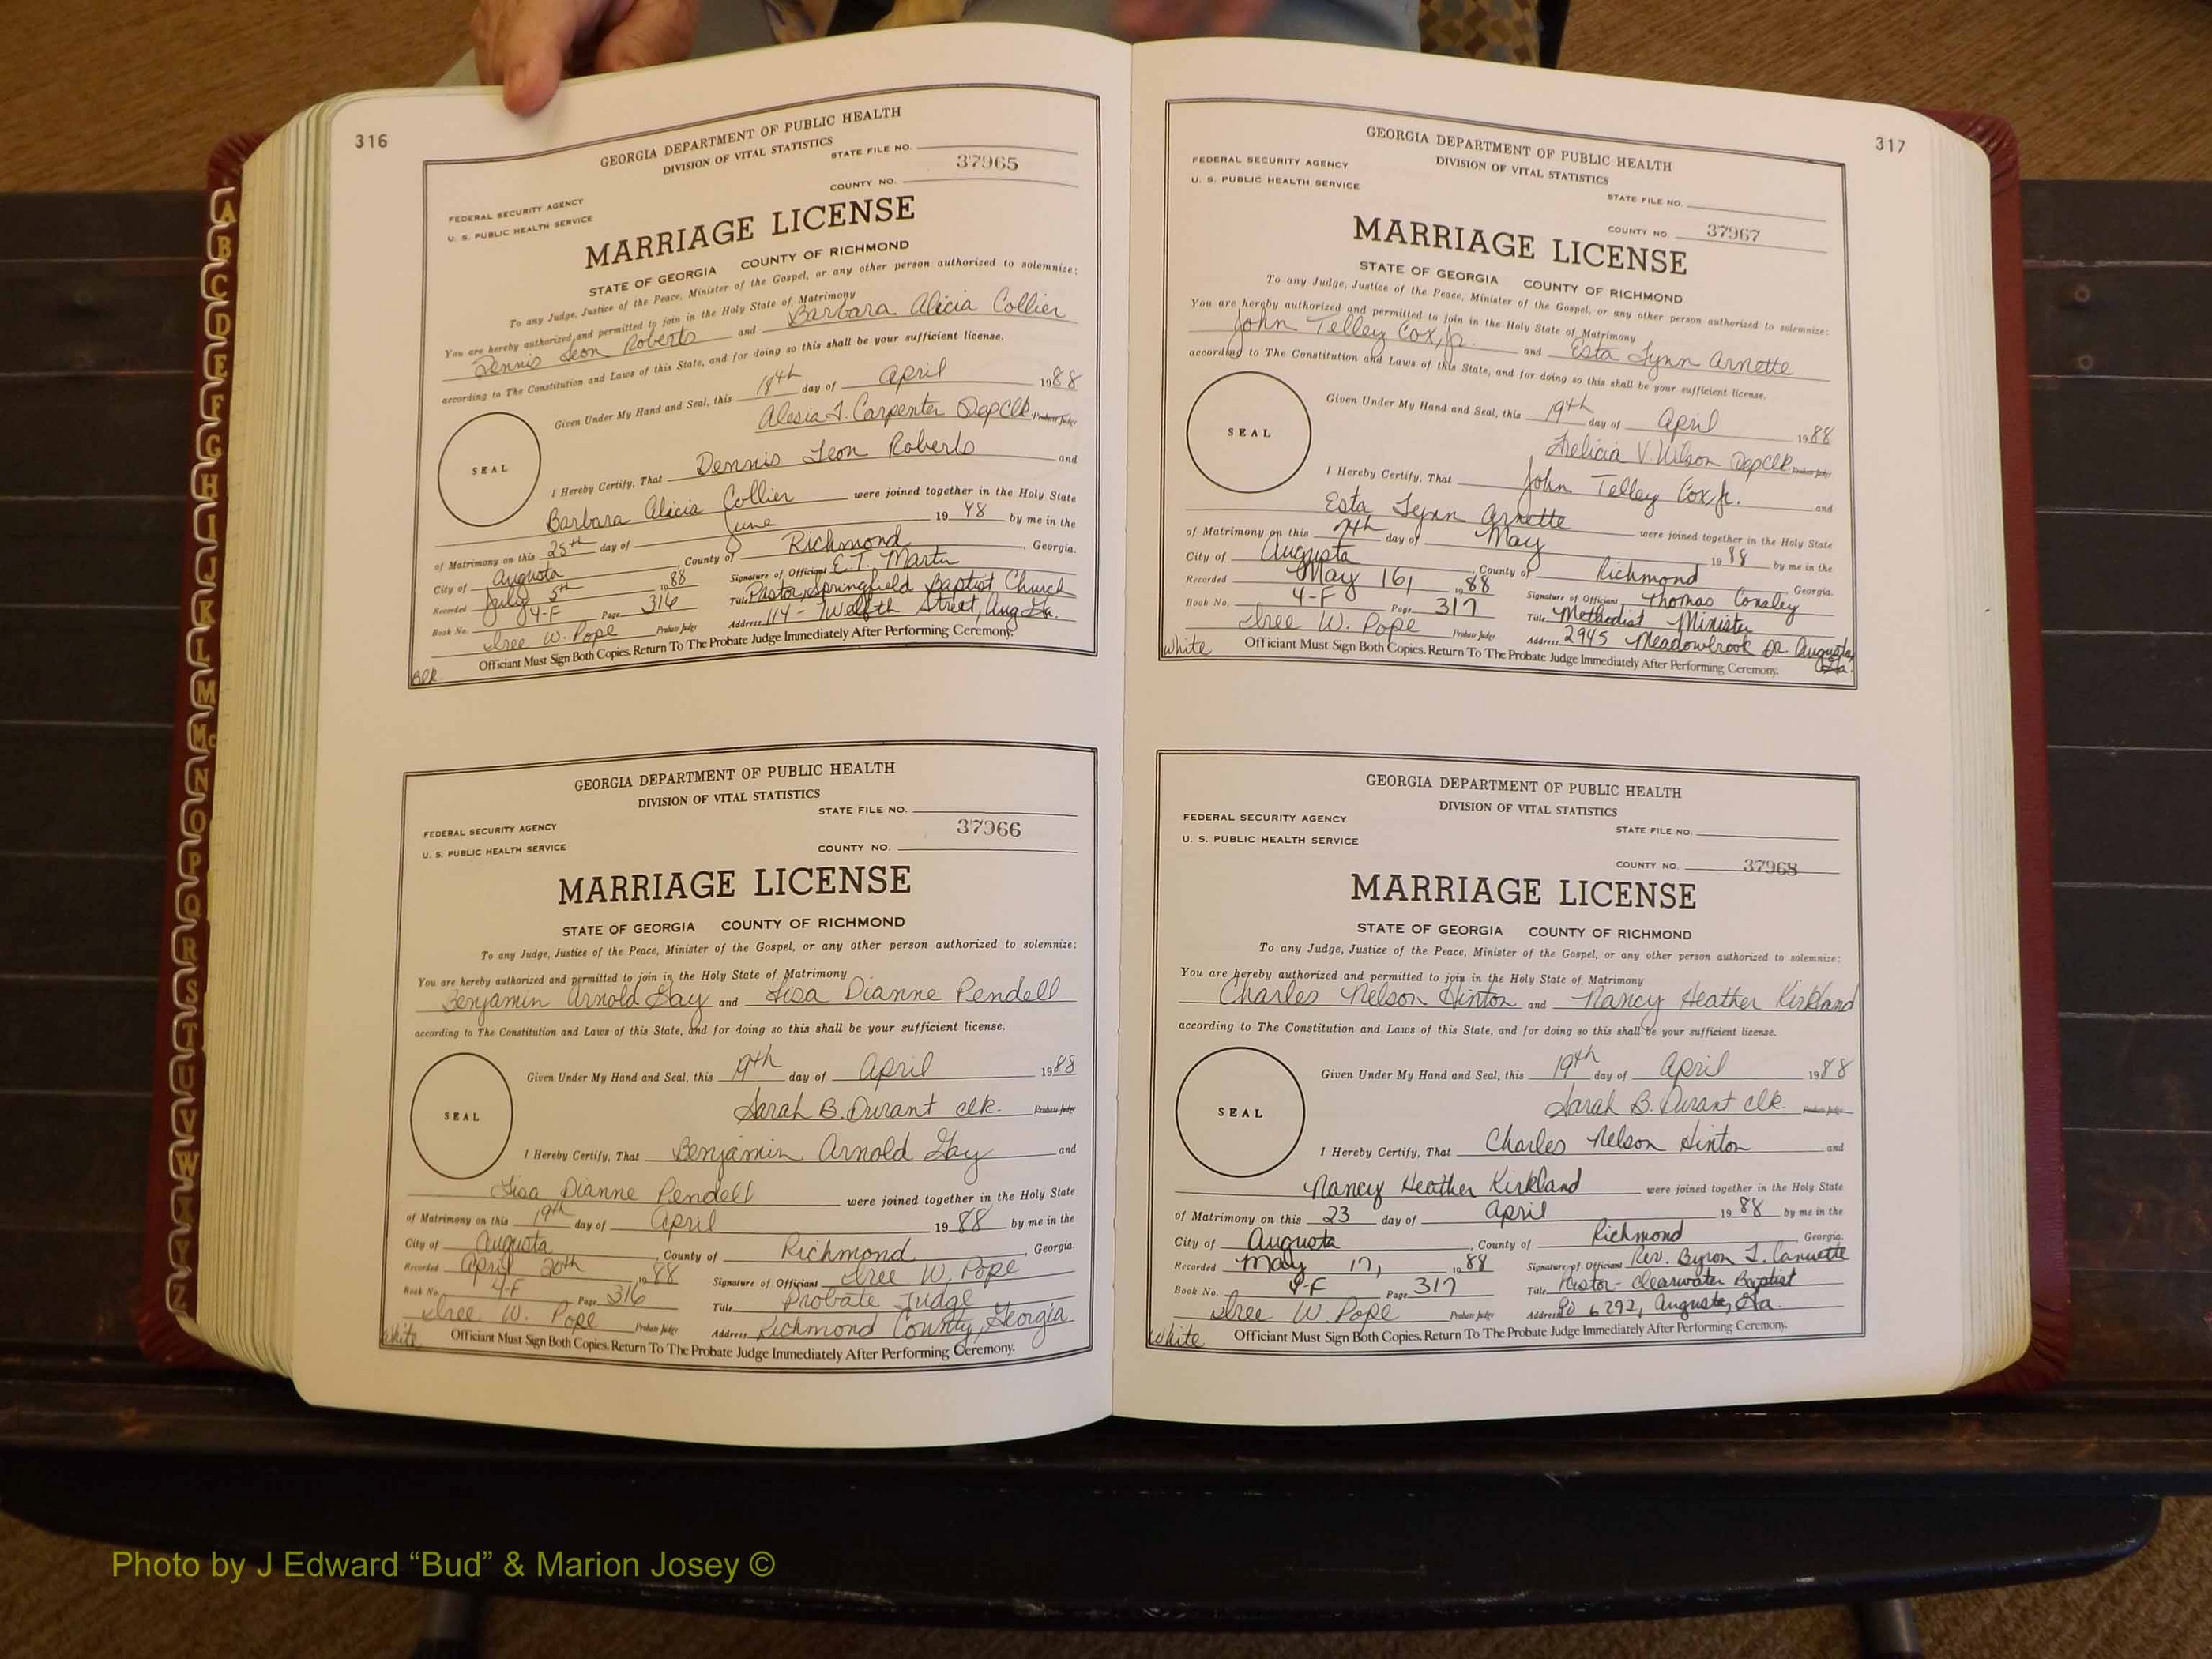 316
GEORGIA DEPARTMENT OF PUBLIC HEALTH
DIVISION OF VITAL STATISTICS
STATE FILE NO.
37965
COUNTY NO.
FEDERAL SECURITY AGENCY
U. S. PUBLIC HEALTH SERVICE
MARRIAGE LICENSE
STATE OF GEORGIA COUNTY OF RICHMOND
To any Judge, Justice of the Peace, Minister of the Gospel, or any other person authorized to solemnize:
You are hereby authorized and permitted to join in the Holy State of Matrimony
Dennis Leon Roberts and Barbara Alicia Collier
according to The Constitution and Laws of this State, and for doing so this shall be your sufficient license.
Given Under My Hand and Seal, this day of April 1988
Alesia Carpenter Dep Clk. Probate Judge
SEAL
I Hereby Certify, That Dennis Leon Roberts and
Barbara Alicia Collier were joined together in the Holy State
of Matrimony on this 25th day of June 19 88 by me in the
City of Augusta, County of Richmond, Georgia.
Recorded July 5th 1988 Signature of Officiant E.T. Martin
Book No. 4-F Page 316 Title Pastor, Springfield Baptist Church
Iree W. Pope Probate Judge Address 114 - Twelfth Street, Aug Ga.
Officiant Must Sign Both Copies. Return To The Probate Judge Immediately After Performing Ceremony.
Blk.
GEORGIA DEPARTMENT OF PUBLIC HEALTH
DIVISION OF VITAL STATISTICS
STATE FILE NO.
37966
COUNTY NO.
FEDERAL SECURITY AGENCY
U. S. PUBLIC HEALTH SERVICE
MARRIAGE LICENSE
STATE OF GEORGIA COUNTY OF RICHMOND
To any Judge, Justice of the Peace, Minister of the Gospel, or any other person authorized to solemnize:
You are hereby authorized and permitted to join in the Holy State of Matrimony
Benjamin Arnold Gay and Lisa Dianne Pendell
according to The Constitution and Laws of this State, and for doing so this shall be your sufficient license.
Given Under My Hand and Seal, this 19th day of April 1988
Sarah B. Durant clk. Probate Judge
SEAL
I Hereby Certify, That Benjamin Arnold Gay and
Lisa Dianne Pendell were joined together in the Holy State
of Matrimony on this 19th day of April 19 88 by me in the
City of Augusta, County of Richmond, Georgia.
Recorded April 20th, 1988 Signature of Officiant Iree W. Pope
Book No. 4-F Page 316 Title Probate Judge
Iree W. Pope Probate Judge Address Richmond County, Georgia
White Officiant Must Sign Both Copies. Return To The Probate Judge Immediately After Performing Ceremony.
317
GEORGIA DEPARTMENT OF PUBLIC HEALTH
DIVISION OF VITAL STATISTICS
FEDERAL SECURITY AGENCY
U. S. PUBLIC HEALTH SERVICE
STATE FILE NO.
COUNTY NO. 37967
MARRIAGE LICENSE
STATE OF GEORGIA COUNTY OF RICHMOND
To any Judge, Justice of the Peace, Minister of the Gospel, or any other person authorized to solemnize:
You are hereby authorized and permitted to join in the Holy State of Matrimony
John Telley Cox, Jr. and Esta Lynn Arnette
according to The Constitution and Laws of this State, and for doing so this shall be your sufficient license.
Given Under My Hand and Seal, this 19th day of April 1988
Felicia V. Wilson Dep Clk. Probate Judge
SEAL
I Hereby Certify, That John Telley Cox, Jr. and
Esta Lynn Arnette were joined together in the Holy State
of Matrimony on this 7th day of May 19 88 by me in the
City of Augusta, County of Richmond, Georgia.
Recorded May 16, 1988 Signature of Officiant Thomas Conaley
Book No. 4-F Page 317 Title Methodist Minister
Iree W. Pope Probate Judge Address 2945 Meadowbrook Dr. Augusta, Ga.
White Officiant Must Sign Both Copies. Return To The Probate Judge Immediately After Performing Ceremony.
GEORGIA DEPARTMENT OF PUBLIC HEALTH
DIVISION OF VITAL STATISTICS
FEDERAL SECURITY AGENCY
U. S. PUBLIC HEALTH SERVICE
STATE FILE NO.
COUNTY NO. 37968
MARRIAGE LICENSE
STATE OF GEORGIA COUNTY OF RICHMOND
To any Judge, Justice of the Peace, Minister of the Gospel, or any other person authorized to solemnize:
You are hereby authorized and permitted to join in the Holy State of Matrimony
Charles Nelson Hinton and Nancy Heather Kirkland
according to The Constitution and Laws of this State, and for doing so this shall be your sufficient license.
Given Under My Hand and Seal, this 19th day of April 1988
Sarah B. Durant clk. Probate Judge
SEAL
I Hereby Certify, That Charles Nelson Hinton and
Nancy Heather Kirkland were joined together in the Holy State
of Matrimony on this 23 day of April 19 88 by me in the
City of Augusta, County of Richmond, Georgia.
Recorded May 17, 1988 Signature of Officiant Rev. Byron L. Canuette
Book No. 4-F Page 317 Title Pastor - Clearwater Baptist
Iree W. Pope Probate Judge Address PO 6292, Augusta, Ga.
White Officiant Must Sign Both Copies. Return To The Probate Judge Immediately After Performing Ceremony.
A
B
C
D
E
F
G
H
I
J
K
L
M
Mc
N
O
P
Q
R
S
T
U
V
W
X
Y
Z
Photo by J Edward “Bud” & Marion Josey ©